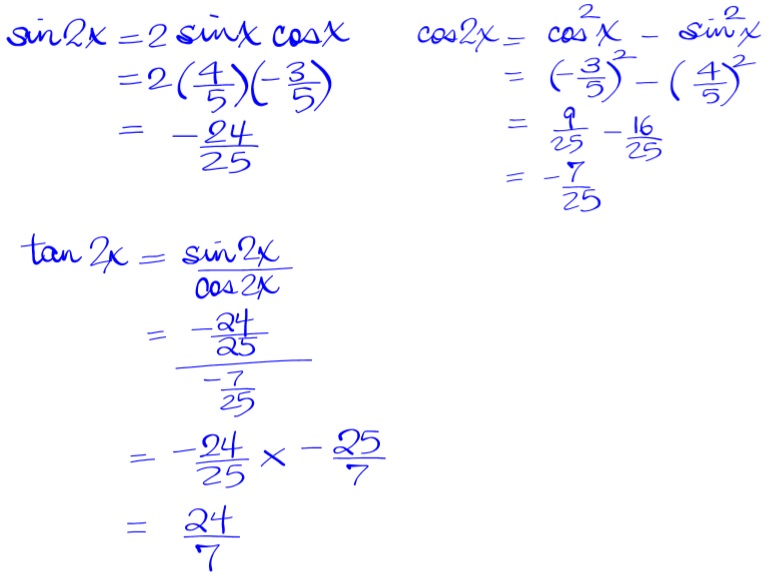 sin2x = 2 sinx cosx
= 2(4/5)(-3/5)
= -24/25
cos2x = cos²x - sin²x
= (-3/5)² - (4/5)²
= 9/25 - 16/25
= -7/25
tan2x = sin2x/cos2x
= (-24/25)/(-7/25)
= -24/25 × -25/7
= 24/7